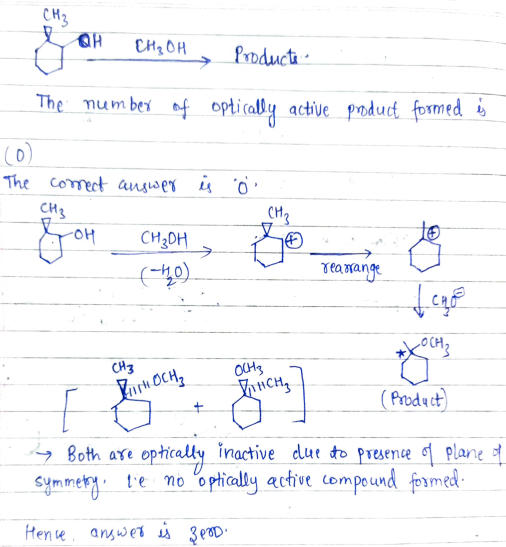 CH₃
OH CH₃OH Products.
The number of optically active product formed is
(0)
The correct answer is '0'.
CH₃ CH₃
OH CH₃OH ⊕ ⊕
(-H₂O) rearrange
CH₃O⊖
OCH₃
*
CH₃ OCH₃
[ OCH₃ + CH₃ ] (Product)
→ Both are optically inactive due to presence of plane of
symmetry. i.e no optically active compound formed.
Hence, answer is zero.